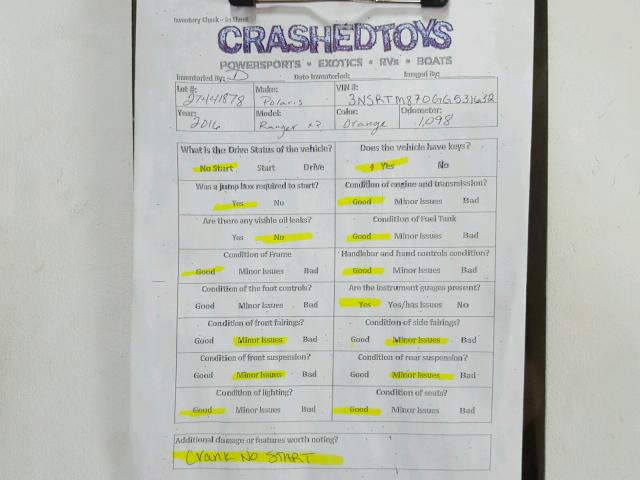 Inventory Check - In Sheet
CRASHEDTOYS
POWERSPORTS * EXOTICS * RVs * BOATS
Inventoried By: D Date Inventoried: Imaged By:
Lot #: Make: VIN #:
27441878 Polaris 3NSRTM870GG531632
Year: Model: Color: Odometer:
2016 Ranger Orange 1,098
What is the Drive Status of the vehicle? Does the vehicle have keys?
No Start Start Drive Yes No
Was a jump box required to start? Condition of engine and transmission?
Yes No Good Minor Issues Bad
Are there any visible oil leaks? Condition of Fuel Tank
Yes No Good Minor Issues Bad
Condition of Frame Handlebar and hand controls condition?
Good Minor Issues Bad Good Minor Issues Bad
Condition of the foot controls? Are the instrument guages present?
Good Minor Issues Bad Yes Yes/has issues No
Condition of front fairings? Condition of side fairings?
Good Minor Issues Bad Good Minor Issues Bad
Condition of front suspension? Condition of rear suspension?
Good Minor Issues Bad Good Minor Issues Bad
Condition of lighting? Condition of seats?
Good Minor Issues Bad Good Minor Issues Bad
Additional damage or features worth noting?
Crank NO START